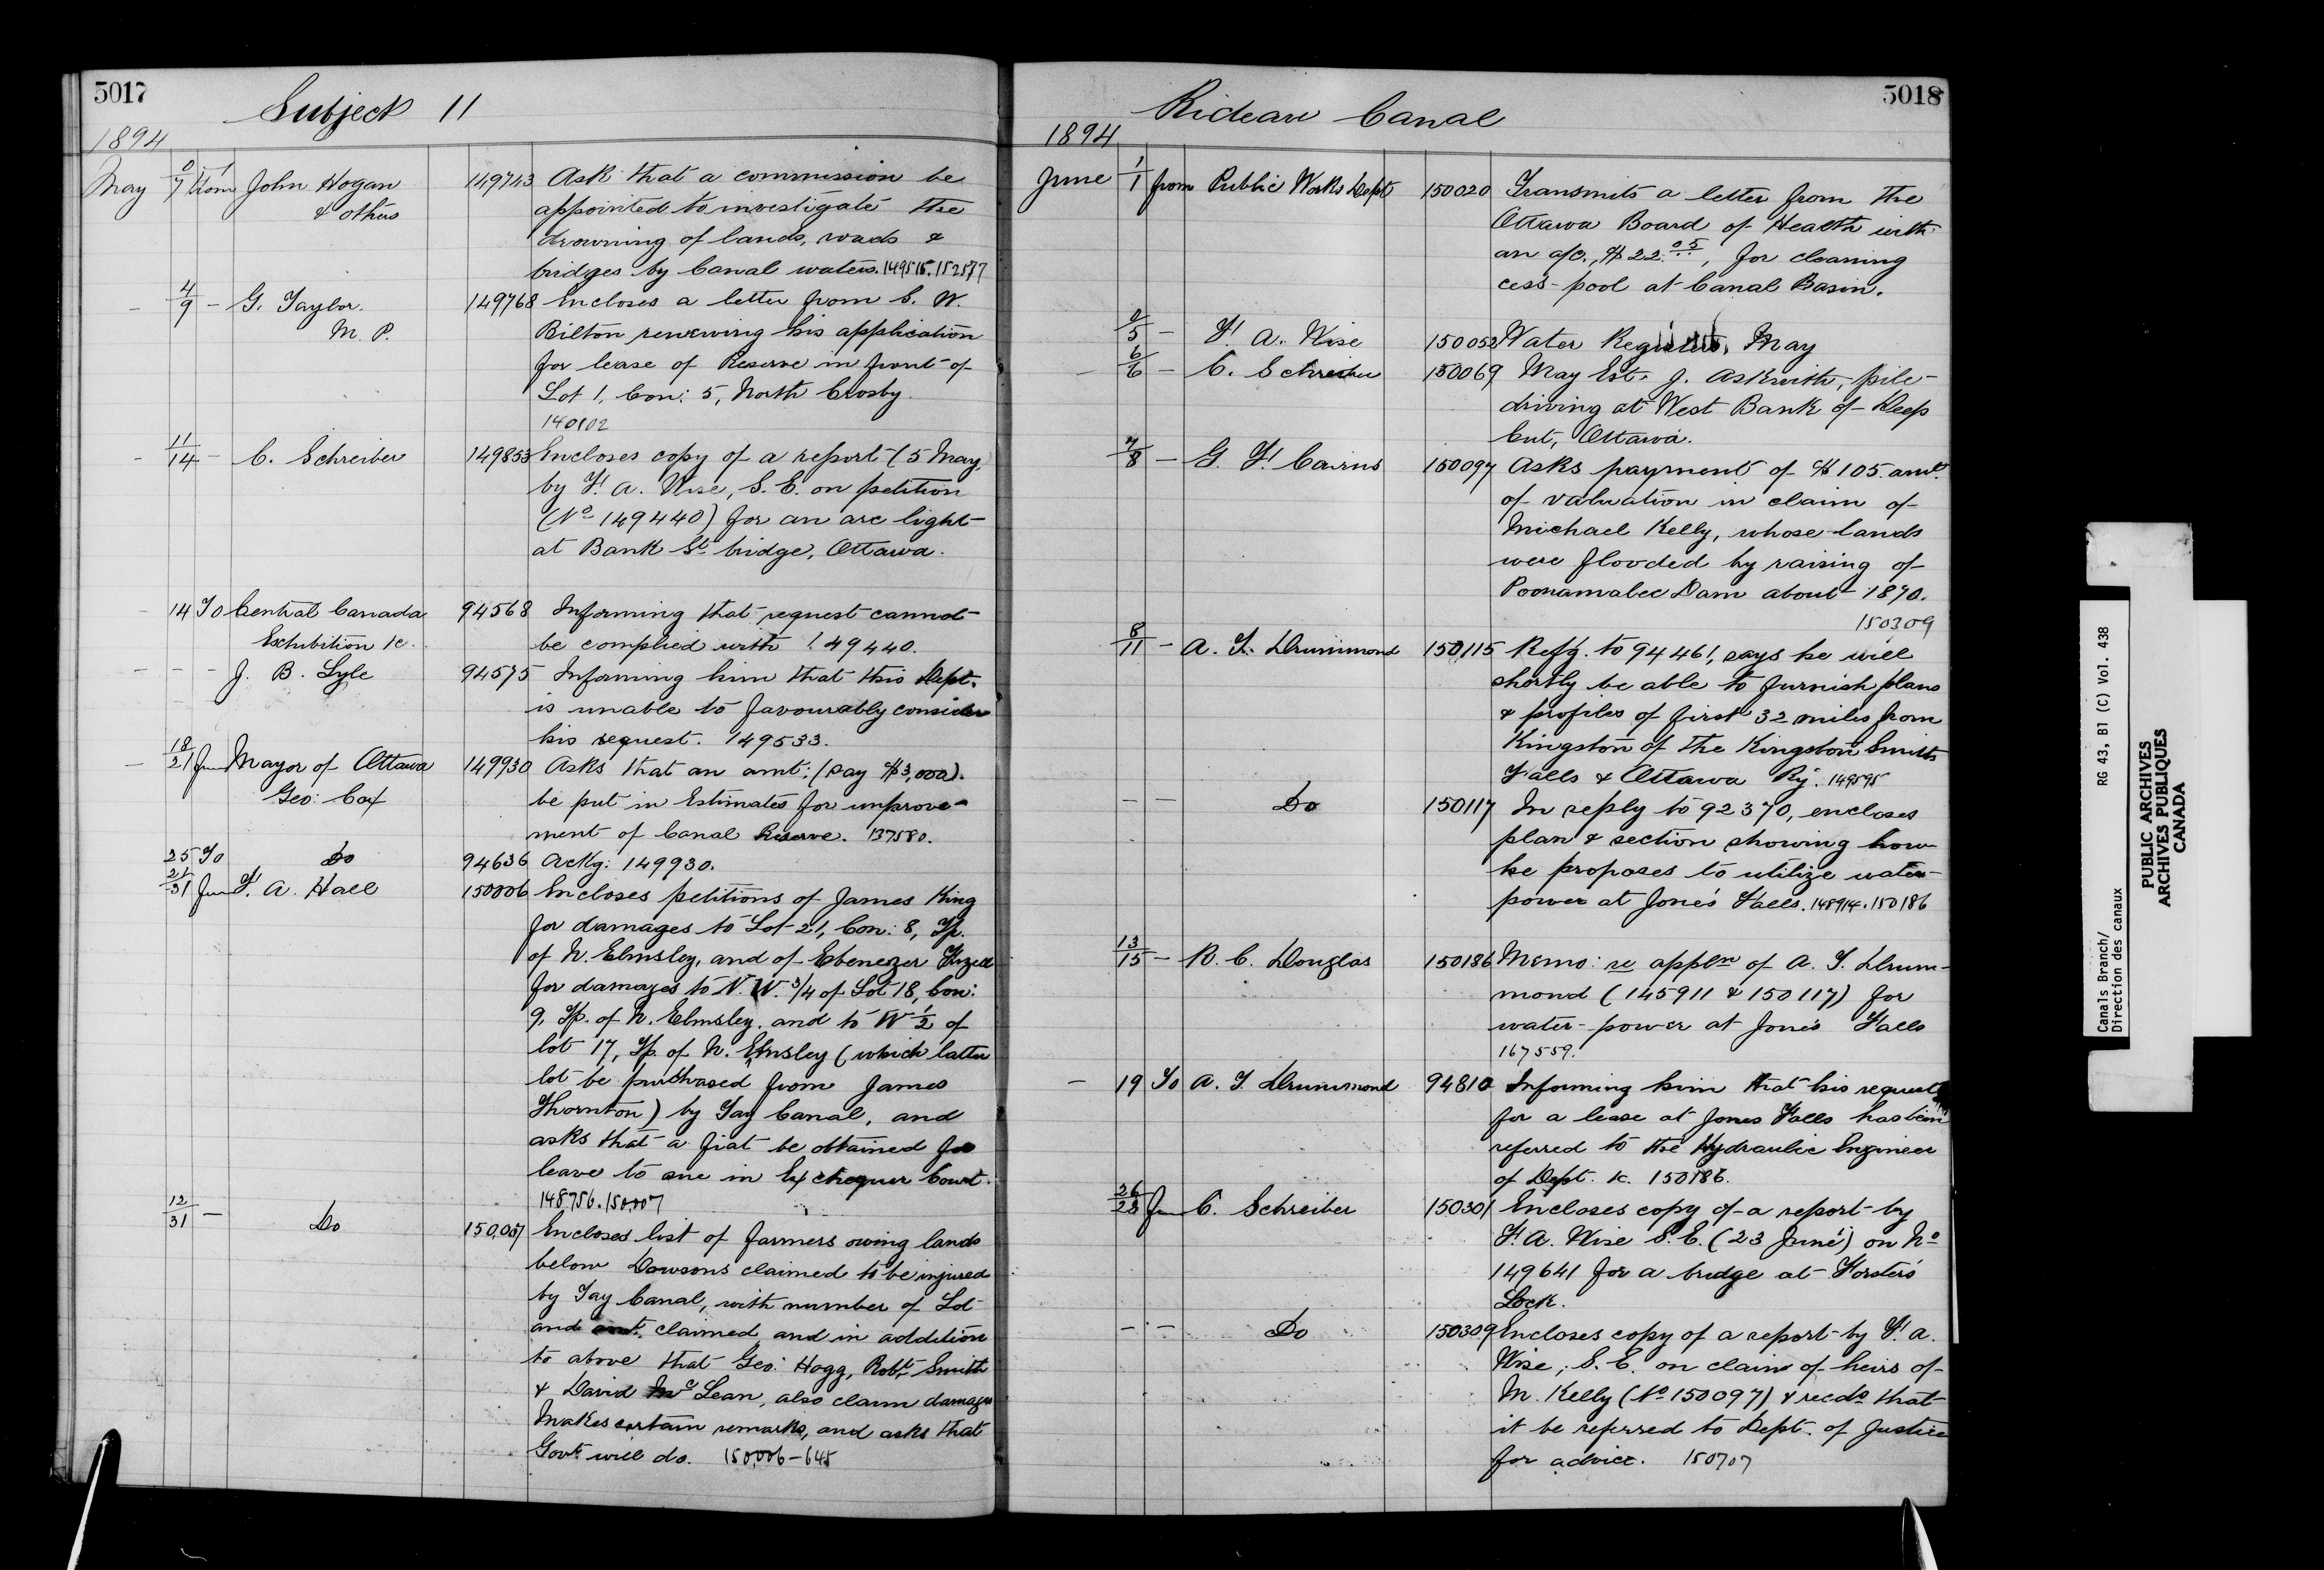 5017
Subject 11
1894
May 0/7 from John Hogan 149743 Ask that a commission be
& others appointed to investigate the
drowning of lands, roads &
bridges by Canal waters. 149515. 152577
- 4/9 - G. Taylor 149768 Encloses a letter from S. W.
M. P. Bilton renewing his application
for lease of Reserve in front of
Lot 1, Con: 5, North Crosby.
140102
- 11/14 - C. Schreiber 149853 Encloses copy of a report (5 May,
by F. A. Wise, S. E. on petition
(No 149440) for an arc light
at Bank St. bridge, Ottawa.
- 14 To Central Canada 94568 Informing that request cannot
Exhibition &c. be complied with 149440.
- - - J. B. Lyle 94575 Informing him that this Dept.
is unable to favourably consider
his request. 149533.
- 18/21 from Mayor of Ottawa 149930 Asks that an amt: (say $3,000).
Geo: Cox be put in Estimates for improve-
ment of Canal Reserve. 137580.
25 To Do 94636 Ackg: 149930.
21/31 from F. A. Hall 150006 Encloses petitions of James King
for damages to Lot 21, Con: 8, Tp.
of N. Elmsley, and of Ebenezer
for damages to N. W. 3/4 of Lot 18, Con:
9, Tp. of N. Elmsley, and to W 1/2 of
lot 17, Tp. of N. Elmsley (which latter
lot he purchased from James
Thornton) by Tay Canal, and
asks that a fiat be obtained for
leave to sue in Exchequer Court.
148756. 150,007
12/31 - Do 150,007 Encloses list of farmers owing lands
below Dowsons claimed to be injured
by Tay Canal, with number of Lot
and amt. claimed, and in addition
to above that Geo: Hogg, Robt. Smith
& David McLean, also claim damages
Makes certain remarks, and asks that
Govt. will do. 150,006-648
5018
Rideau Canal
1894
June 1/1 from Public Works Dept 150020 Transmits a letter from the
Ottawa Board of Health with
an a/c., $22.05, for cleaning
cess-pool at Canal Basin.
2/5 - F. A. Wise 150052 Water Register, May
- 6/6 - C. Schreiber 150069 May Est. J. Askwith, pile-
driving at West Bank of Deep
Cut, Ottawa.
7/8 - G. F. Cairns 150097 Asks payment of $105. amt.
of valuation in claim of
Michael Kelly, whose lands
were flooded by raising of
Poonamalee Dam about 1870.
150309
8/11 - A. T. Drummond 150115 Refg. to 94461, says he will
shortly be able to furnish plans
& profiles of first 32 miles from
Kingston of the Kingston Smiths
Falls & Ottawa Ry. 149595
- - Do 150117 In reply to 92370, encloses
plan & section showing how
he proposes to utilize water-
power at Jones' Falls. 148914. 150186
13/15 - R. C. Douglas 150186 Memo: re appln of A. T. Drum-
mond (145911 & 150117) for
water-power at Jones Falls
167559.
- 19 To A. T. Drummond 94810 Informing him that his request
for a lease at Jones Falls has been
referred to the Hydraulic Engineer
of Dept. &c. 150186.
26/28 from C. Schreiber 150301 Encloses copy of a report by
F. A. Wise S. E. (23 June) on No
149641 for a bridge at Forster's
Lock.
- - Do 150309 Encloses copy of a report by F. A.
Wise, S. E. on claim of heirs of
M. Kelly (No 150097) & recds that
it be referred to Dept. of Justice
for advice. 150707
Canals Branch/ RG 43, B1 (C) Vol. 438
Direction des canaux
PUBLIC ARCHIVES
ARCHIVES PUBLIQUES
CANADA